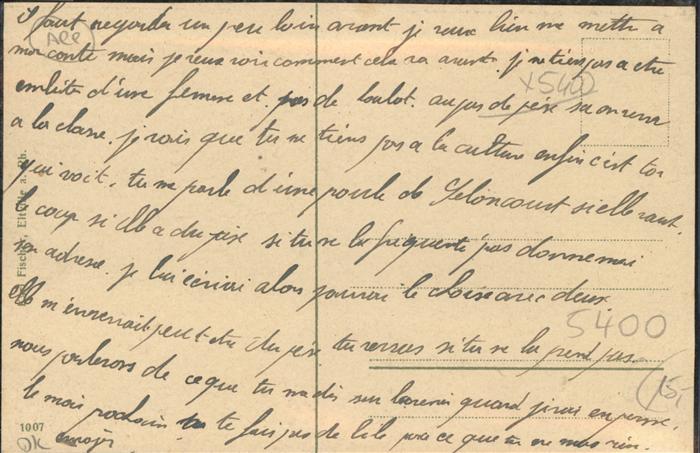 I faut regarder un peu loin avant je veux bien me mettre a
mon conte mais je veux voir comment cela va avant. je ne tiens pas a etre
embeté d'une femme et pas de boulot. au pas de pèse
a la classe. je vois que tu ne tiens pas a la culture enfin c'est toi
qui voit. tu me parle d'une poule de Seloncourt si elle vaut
le coup si elle a du pèse si tu ne la fréquente pas donne moi
son adresse. je lui écrirai alors j'aurai le choix avec deux
elle m'enverrait peut etre du pèse. tu verras si tu ne la prend pas.
nous parlerons de ce que tu me dis sur l'avenir quand j'irai en perme.
le mois prochain te fais pas de bile pour ce que tu ne mas rien.
envoyer
(ALL)
x 540
5400
(15,
Fischer, Eltville a. Rh.
1007
OK